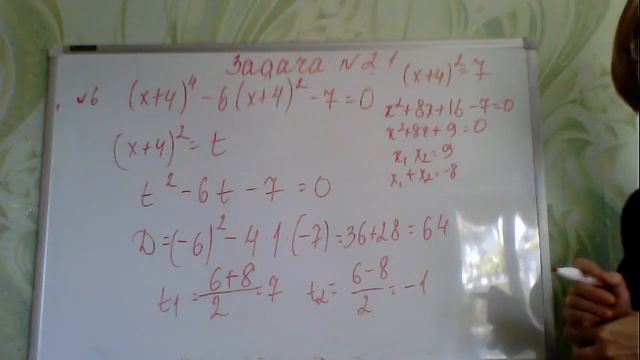 Задача №21
№6 (x+4)⁴ - 6(x+4)² - 7 = 0
(x+4)² = t
t² - 6t - 7 = 0
D = (-6)² - 4·1·(-7) = 36+28 = 64
t₁ = (6+8)/2 = 7   t₂ = (6-8)/2 = -1
(x+4)² = 7
x² + 8x + 16 - 7 = 0
x² + 8x + 9 = 0
x₁ x₂ = 9
x₁ + x₂ = -8